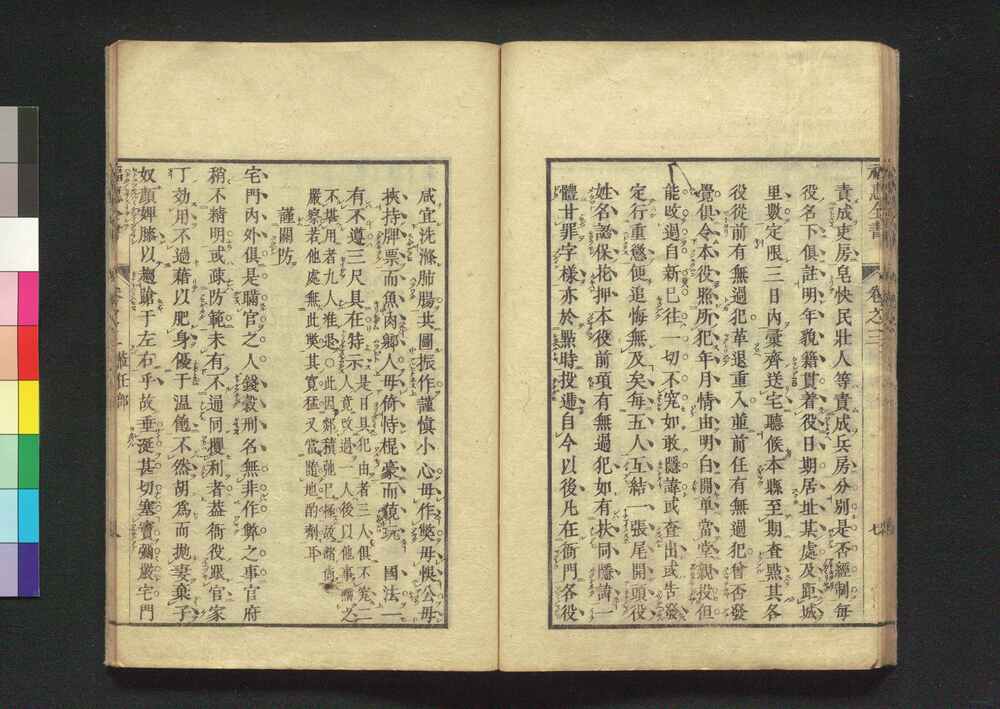 責成吏房皂快民壯人等責成兵房分別是否經制每
役名下俱註明年貌籍貫着役日期居址某處及距城
里數定限三日內彙齊送宅聽候本縣至期查點其各
役從前有無過犯革退重入並前任有無過犯曾否發
覺俱令本役照所犯年月情由明白開單當堂親投但
能改過自新已往一切不究如敢隱諱或查出或告發
定行重懲便追悔無及矣每五人互結一張尾開頭役
姓名認保抢押本役前項有無過犯如有扶同隱請一
體甘罪字樣亦於點時投遞自今以後凡在衙門各役
福惠全書 卷之二
咸宜洗滌肺腸共圖振作謹愼小心毋作弊毋悞公毋
挾持牌票而魚肉鄉人毋倚恃棍豪而藐玩 國法一
有不遵三尺具在特示
是日具犯由者三人俱不究二
人竟改過一人後以他事斃之
不堪用者九人准退此因鄰積弛已極故
嚴察若他處無此獘其寬猛又當隨地酌劑耳
謹關防
宅門內外俱是瞞官之人錢穀刑名無非作弊之事官府
稍不精明或疎防範未有不通同攫利者葢衙役跟官家
丁効用不過藉以肥身優于溫飽不然胡爲而拋妻棄子
奴顏婢膝以趨蹌于左右乎故垂涎甚切塞竇彌嚴宅門